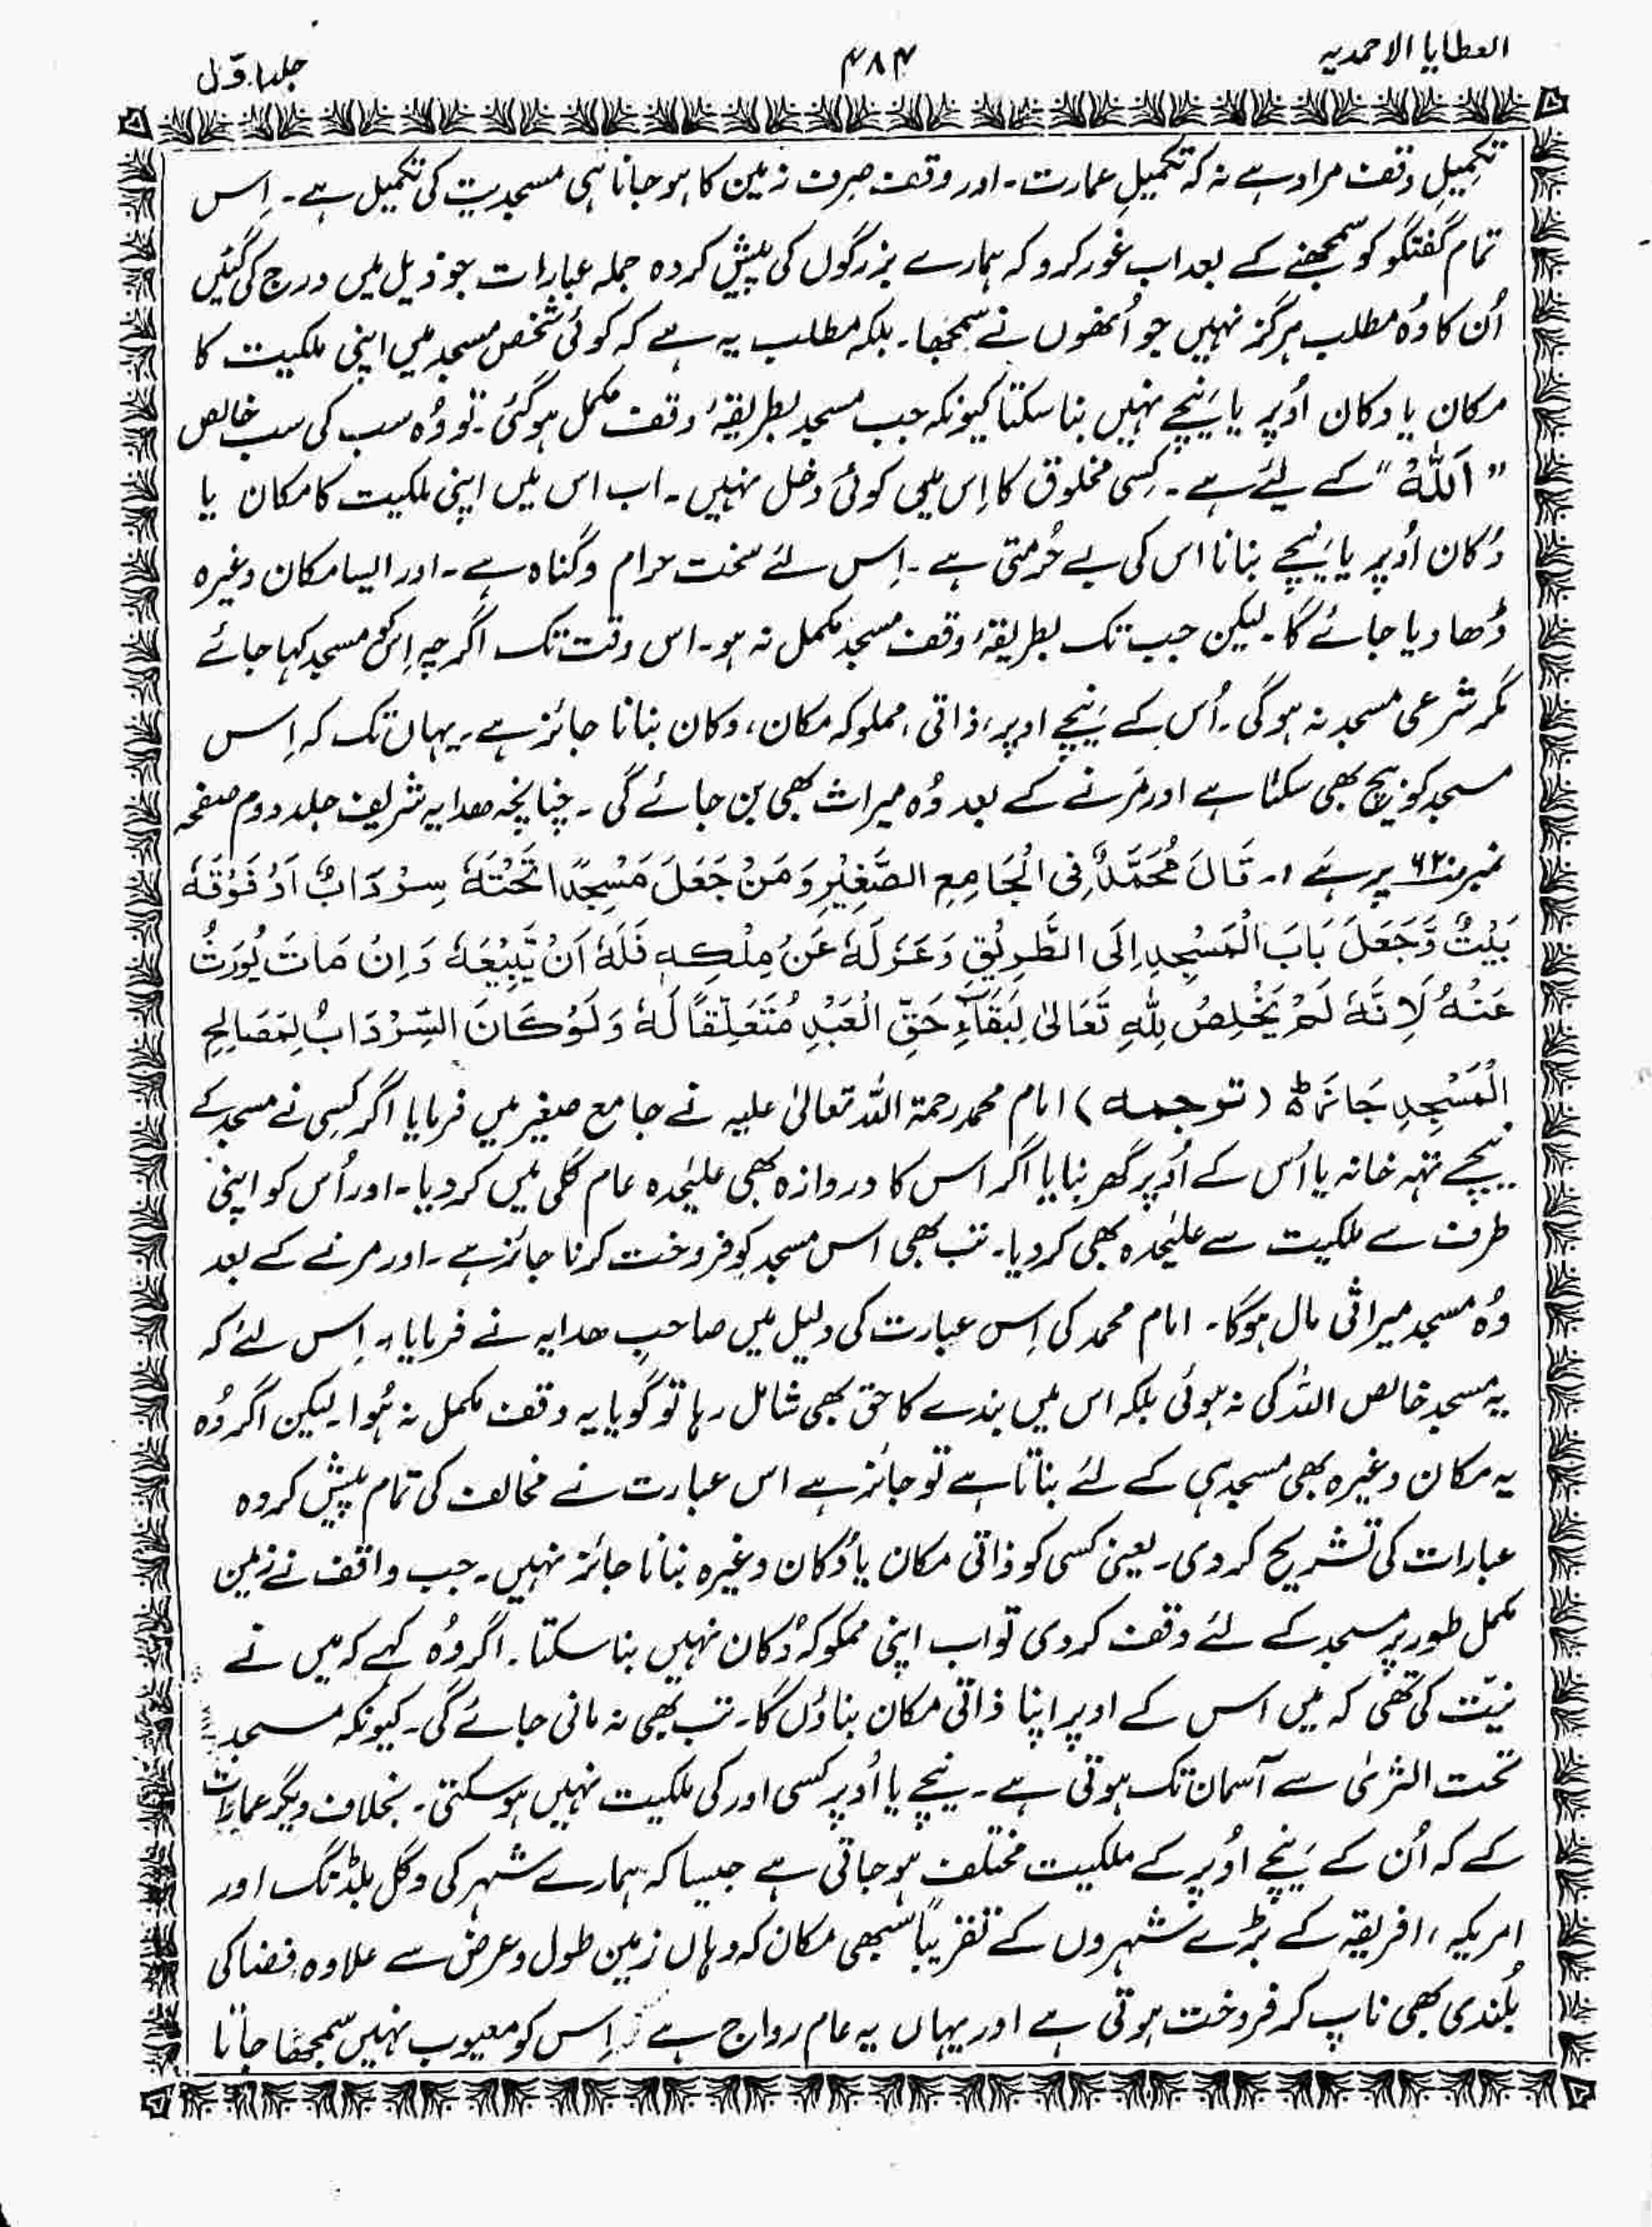 العطایا الاحمدیہ
۴۸۴
جلد اوّل
تکمیلِ وقف مراد ہے نہ کہ تکمیلِ عمارت۔ اور وقف صرف زمین کا ہو جانا ہی مسجدیت کی تکمیل ہے۔ اِس
تمام گفتگو کو سمجھنے کے بعد اب غور کرو کہ ہمارے بزرگوں کی پیش کردہ جملہ عبارات جو ذیل میں درج کی گئیں
اُن کا وُہ مطلب ہرگز نہیں جو اُنھوں نے سمجھا۔ بلکہ مطلب یہ ہے کہ کوئی شخص مسجد میں اپنی ملکیت کا
مکان یا دکان اُوپر یا نیچے نہیں بنا سکتا کیونکہ جب مسجد بطریقۂ وقف مکمل ہو گئی۔ تو وُہ سب کی سب خالص
"اَللّٰہُ" کے لیۓ ہے۔ کِسی مخلوق کا اِس میں کوئی دخل نہیں۔ اب اس میں اپنی ملکیت کا مکان یا
دُکان اُوپر یا نیچے بنانا اس کی بے حُرمتی ہے۔ اِس لئے سخت حرام و گناہ ہے۔ اور ایسا مکان وغیرہ
ڈھا دیا جائے گا۔ لیکن جب تک بطریقۂ وقف مسجد مکمل نہ ہو۔ اس وقت تک اگرچہ اِس کو مسجد کہا جائے
مگر شرعی مسجد نہ ہو گی۔ اُس کے نیچے اوپر، ذاتی، مملوکہ مکان، دکان بنانا جائز ہے۔ یہاں تک کہ اِس
مسجد کو بیچ بھی سکتا ہے اور مَرنے کے بعد وُہ میراث بھی بن جائے گی۔ چنانچہ ھدایہ شریف جلد دوم صفحہ
نمبر ۶۲۰ پر ہے :۔ قَالَ مُحَمَّدٌ فِی الْجَامِعِ الصَّغِیْرِ وَمَنْ جَعَلَ مَسْجِدًا تَحْتَهٗ سِرْدَابٌ اَوْ فَوْقَهٗ
بَیْتٌ وَّجَعَلَ بَابَ الْمَسْجِدِ اِلَی الطَّرِیْقِ وَعَزَلَهٗ عَنْ مِلْکِهٖ فَلَهٗ اَنْ یَّبِیْعَهٗ وَاِنْ مَاتَ یُوْرَثُ
عَنْهُ لِاَنَّهٗ لَمْ یَخْلُصْ لِلّٰهِ تَعَالٰی لِبَقَآءِ حَقِّ الْعَبْدِ مُتَعَلِّقًا لَهٗ وَلَوْ کَانَ السِّرْدَابُ لِمَصَالِحِ
الْمَسْجِدِ جَازَ (ترجمہ) امام محمد رحمۃ اللہ تعالیٰ علیہ نے جامع صغیر میں فرمایا اگر کسی نے مسجد کے
نیچے تہہ خانہ یا اُس کے اُوپر گھر بنایا اگر اس کا دروازہ بھی علیٰحدہ عام گلی میں کر دیا۔ اور اُس کو اپنی
طرف سے ملکیت سے علیٰحدہ بھی کر دیا۔ تب بھی اس مسجد کو فروخت کرنا جائز ہے۔ اور مرنے کے بعد
وُہ مسجد میراثی مال ہوگا۔ امام محمد کی اِس عبارت کی دلیل میں صاحبِ ھدایہ نے فرمایا۔ اِس لئے کہ
یہ مسجد خالص اللہ کی نہ ہوئی بلکہ اس میں بندے کا حق بھی شامل رہا تو گویا یہ وقف مکمل نہ ہُوا۔ لیکن اگر وُہ
یہ مکان وغیرہ بھی مسجد ہی کے لئے بناتا ہے تو جائز ہے اس عبارت نے مخالف کی تمام پیش کردہ
عبارات کی تشریح کر دی۔ یعنی کسی کو ذاتی مکان یا دُکان وغیرہ بنانا جائز نہیں۔ جب واقف نے زمین
مکمل طور پر مسجد کے لئے وقف کر دی تو اب اپنی مملوکہ دُکان نہیں بنا سکتا۔ اگر وُہ کہے کہ میں نے
نیّت کی تھی کہ میں اس کے اوپر اپنا ذاتی مکان بناؤں گا۔ تب بھی نہ مانی جائے گی۔ کیونکہ مسجد
تحت الثریٰ سے آسمان تک ہوتی ہے۔ نیچے یا اُوپر کسی اور کی ملکیت نہیں ہو سکتی۔ بخلاف دیگر عمارات
کے کہ اُن کے نیچے اوُپر کے ملکیت مختلف ہو جاتی ہے جیسا کہ ہمارے شہر کی وگل بلڈنگ اور
امریکہ، افریقہ کے بڑے شہروں کے تقریباً سبھی مکان کہ وہاں زمین طول و عرض سے علاوہ فضا کی
بُلندی بھی ناپ کر فروخت ہوتی ہے اور یہاں یہ عام رواج ہے اِس کو معیوب نہیں سمجھا جاتا